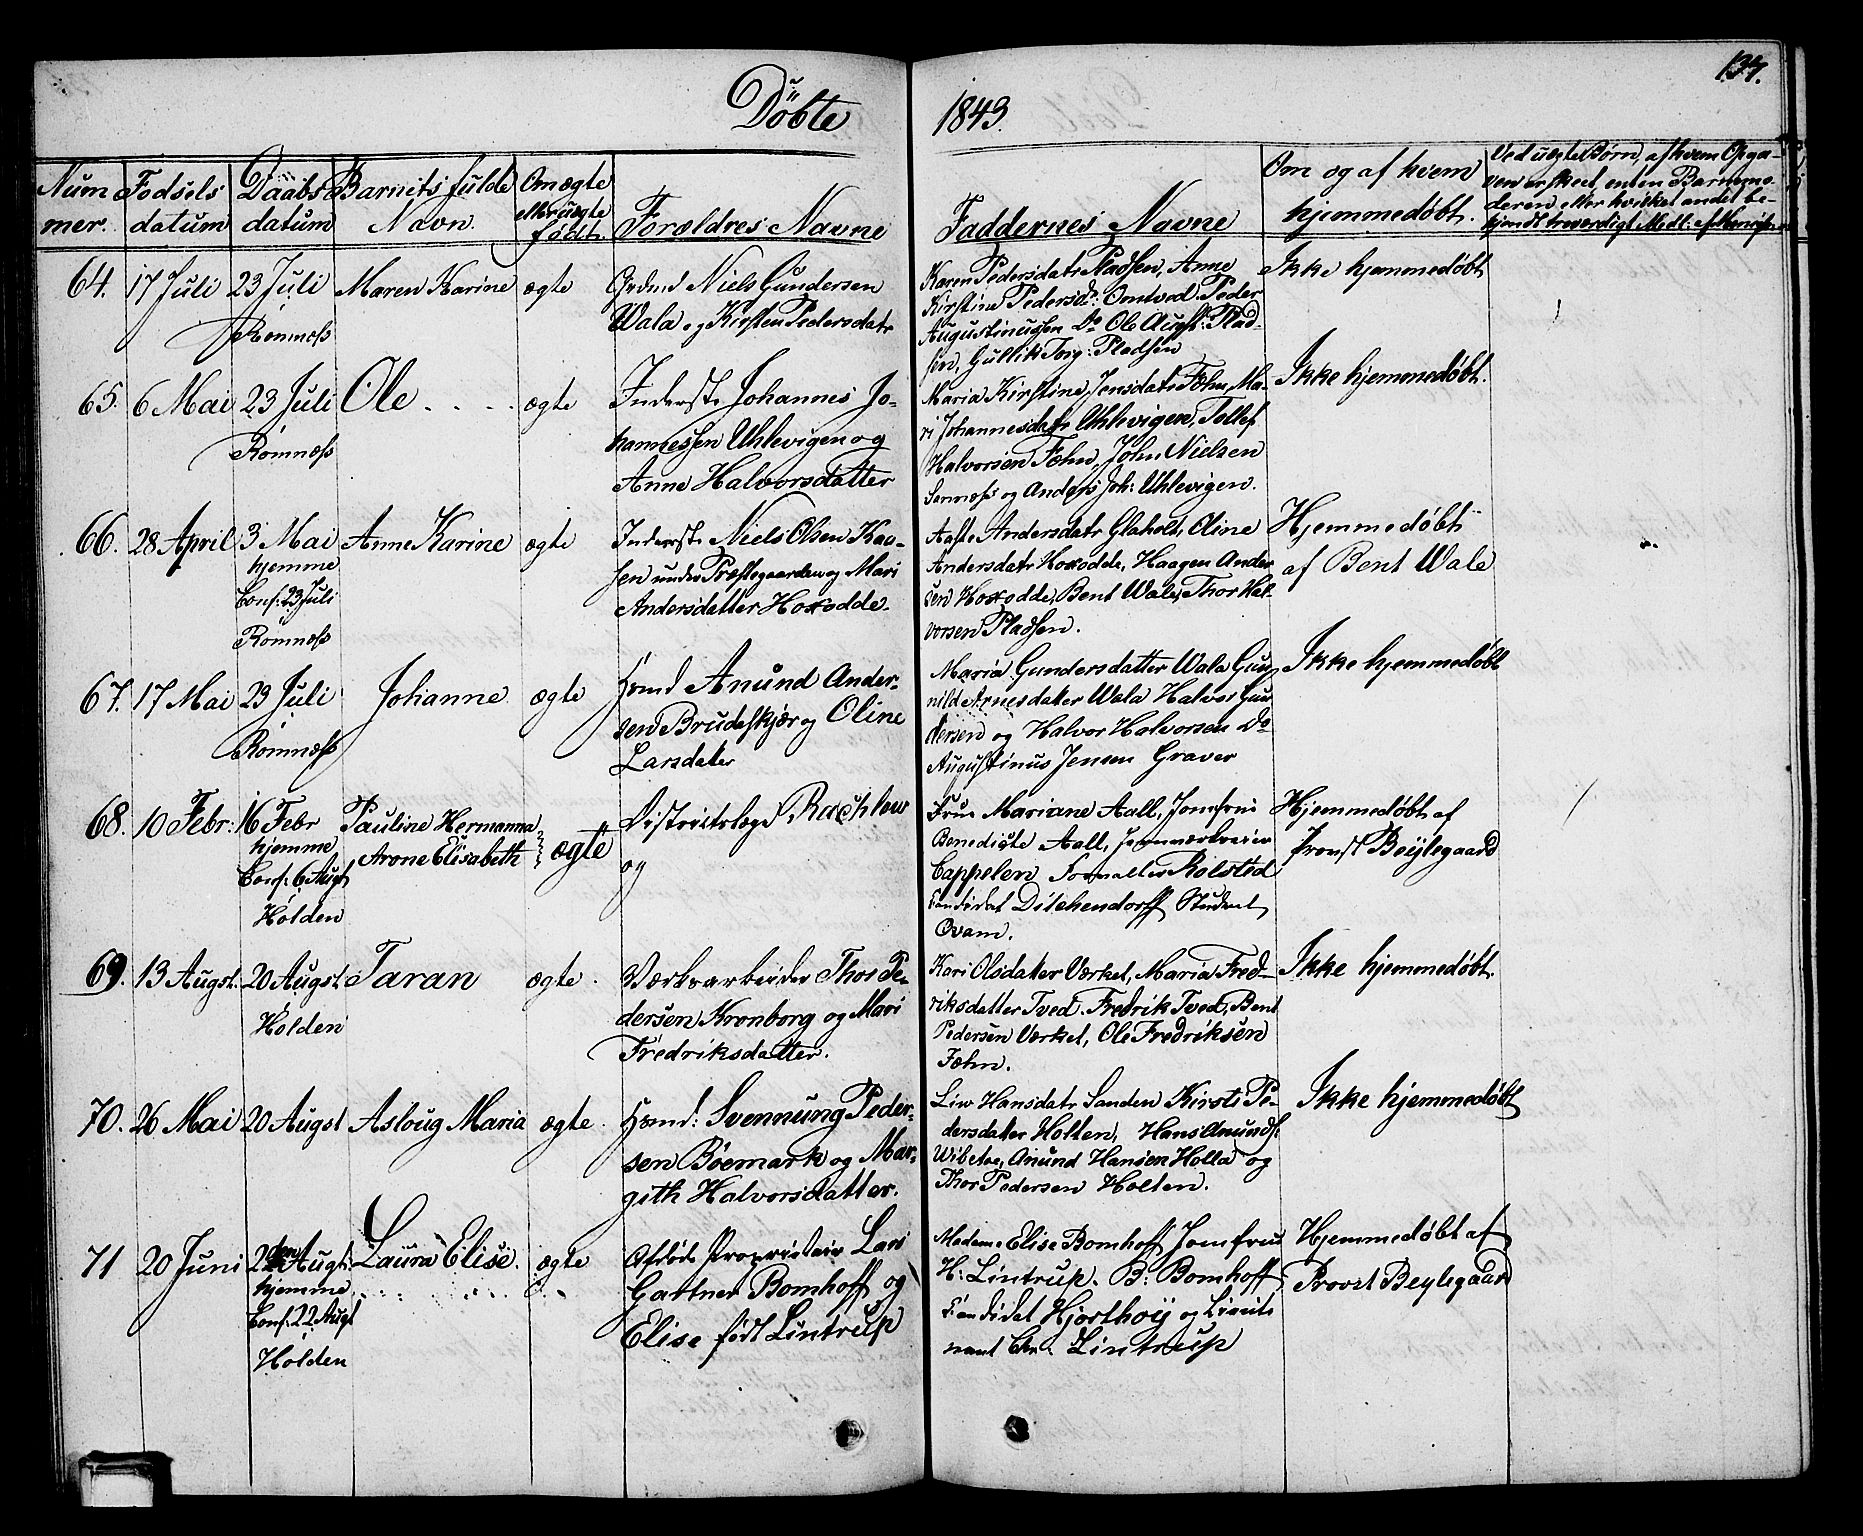 137.
Döbte 1843.
Num
mer.
Fødsels
datum
Daabs
datum
Barnets fulde
Navn.
Om ægte
eller uægte
født
Forældres Navne
Faddernes Navne
Om og af hvem
hjemmedøbt.
Ved uægte Børn, af hvem Opga-
ven er skeet, enten Barnemo-
deren eller hvilket andet be-
kjendt troværdigt Medl: af Menigh
64. 17 Juli 23 Juli
Romnæss
Maren Karine ægte
Grdmd Niels Gundersen
Wala og Kirsten Pedersdatr
Karen Pedersdatr Pladsen, Anne
Kirstine Pedersd: Omtved Peder
Augustinussen Do Ole August: Plad-
sen, Gullik Torg: Pladsen
Ikke hjemmedøbt
65. 6 Mai 23 Juli
Romnæss
Ole ægte
Inderste Johannes Jo-
hannessen Uhlevigen og
Anne Halvorsdatter
Maria Kirstine Jensdatr Fæhn, Ma-
ri Johannesdatr Uhlevigen, Tollef
Halvorsen Fæhn, John Nielsen
Sannæss og Anders Joh: Uhlevigen.
Ikke hjemmedøbt.
66. 28 April 3 Mai
hjemme
Conf: 23 Juli
Romnæss
Anne Karine ægte
Inderste Niels Olsen Kaa-
sen under Præstegaarden og Mari
Andersdatter Hoxodde.
Aaste Andersdatr Glaholt, Oline
Andersdatr Hoxodde, Haagen Ander
sen Hoxodde, Bent Wale, Thor Hal-
vorsen Pladsen.
Hjemmedøbt
af Bent Wale
67. 17 Mai 23 Juli
Romnæss
Johanne ægte
Hsmd Anund Ander-
sen Brudeskjær og Oline
Larsdater
Maria Gundersdatter Wala Gun
nild Arnesdater Wala Halvor Gun
dersen og Halvor Halvorsen Do
Augustinus Jensen Graver
Ikke hjemmedøbt
68. 10 Febr: 16 Febr
hjemme
Conf: 6 Augt
Holden
Pauline Hermanna
Arone Elisabeth ægte
Districtslæge Rachlew
og
Frue Mariane Aall, Jomfrue
Benedicte Aall,
Cappelen Rolsted
Candidat Ditchendorff Student
Qvam.
Hjemmedøbt af
Provst Beylegaard
69. 13 Augst. 20 Augst
Holden
Taran ægte.
Værksarbeider Thor Pe-
dersen Kronborg og Mari
Fredriksdatter.
Kari Olsdater Værket, Maria Fred-
riksdatter Tved. Fredrik Tved, Bent
Pedersen Værket, Ole Fredriksen
Fæhn.
Ikke hjemmedøbt.
70. 26 Mai 20 Augst Asloug Maria ægte.
Hsmd: Svennung Peder-
sen Bøemark og Mar-
gith Halvorsdatter.
Liv Hansdatr Sanden Kirsti Pe-
dersdater Holten, Hans Anunds:
Wibetoe, Anund Hansen Holla og
Thor Pedersen Holten.
Ikke hjemmedøbt
71 20 Juni 22den Augt.
hjemme
Conf. 22 Augt
Holden
Laura Elise. ægte
Afdøde Proprietair Lars
Gartner Bomhoff og
Elise født Lintrup
Madame Elise Bomhoff Jomfrue
H: Lintrup. B: Bomhoff
Candidat Hjorthøy og Lieute
nant Chr. Lintrup
Hjemmedøbt af
Provst Beylegaard